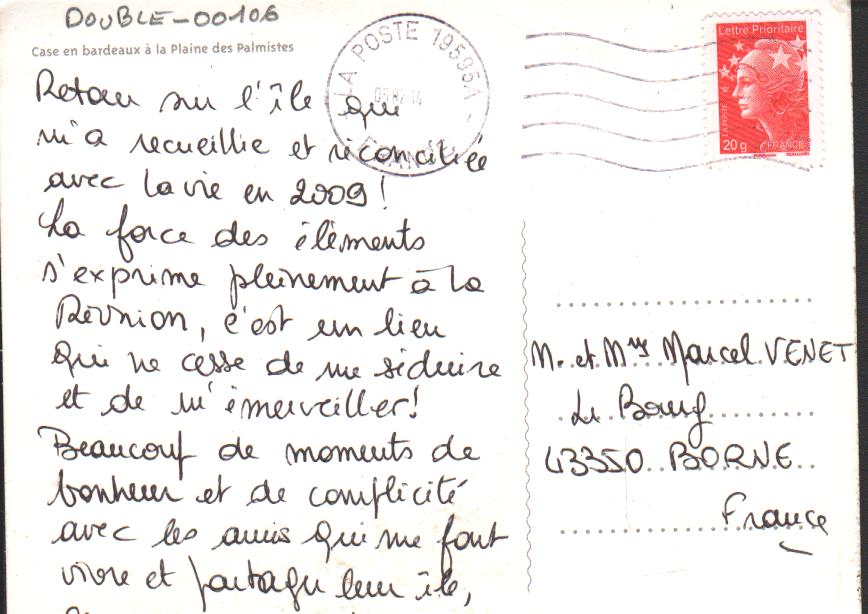 DOUBLE-00106
Case en bardeaux à la Plaine des Palmistes
LA POSTE 19595A
Lettre Prioritaire
LA POSTE
20g
FRANCE
Retour sur l'île qui
m'a recueillie et réconciliée
avec la vie en 2009!
La force des éléments
s'exprime pleinement à la
Réunion, c'est un lieu
qui ne cesse de me séduire
et de m'émerveiller!
Beaucoup de moments de
bonheur et de complicité
avec les amis qui me font
vivre et partager leur île,
M. et Mme Marcel VENET
Le Bourg
43350 BORNE
France